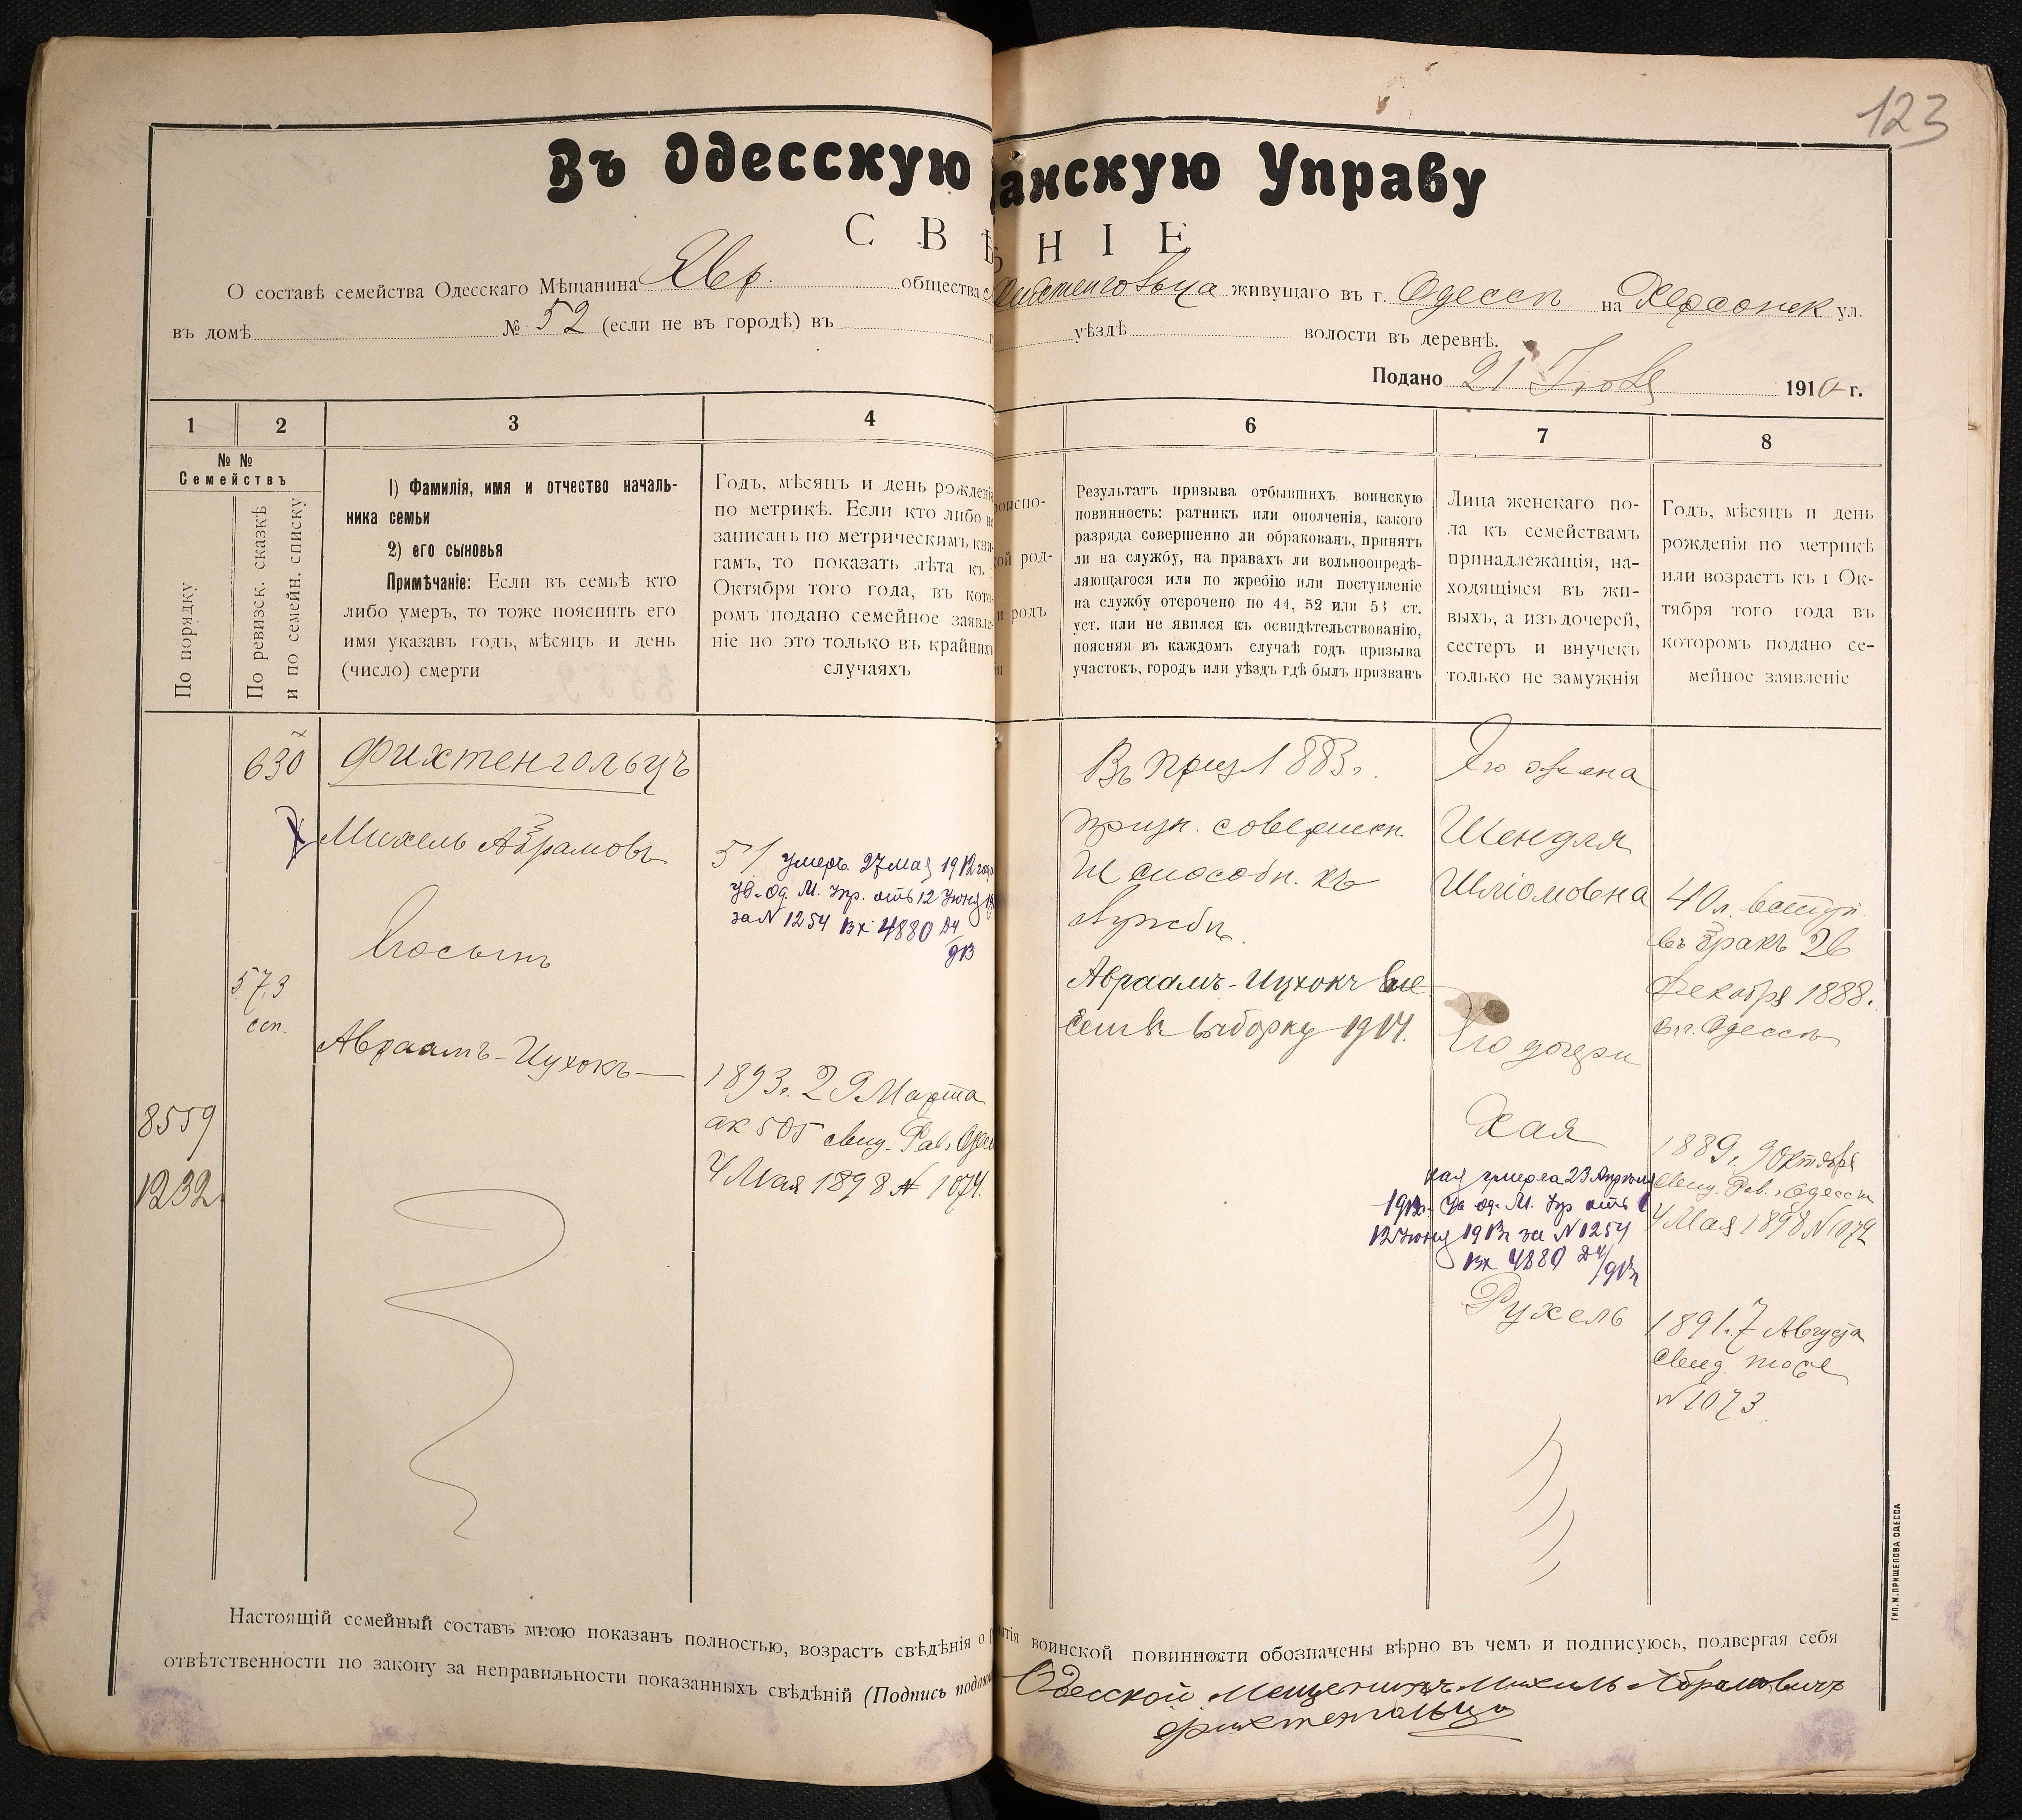 123
Въ Одесскую анскую Управу
С В Ѣ Н І Е
О составѣ семейства Одесскаго Мѣщанина Евр. общества живущаго въ г. Одессѣ на Херсонск ул.
въ домѣ № 52 (если не въ городѣ) въ уѣздѣ волости въ деревнѣ.
Подано 21 1910 г.
1 2 3 4 6 7 8
№ №
Семействъ
По порядку
По ревизск. сказкѣ
и по семейн. списку
1) Фамилія, имя и отчество началь-
ника семьи
2) его сыновья
Примѣчаніе: Если въ семьѣ кто
либо умеръ, то тоже пояснить его
имя указавъ годъ, мѣсяцъ и день
(число) смерти
Годъ, мѣсяцъ и день рожденія
по метрикѣ. Если кто либо не
записанъ по метрическимъ кни-
гамъ, то показать лѣта къ 1
Октября того года, въ кото-
ромъ подано семейное заявле-
ніе но это только въ крайнихъ
случаяхъ
роиспо-
ой род-
и родъ
ія
Результатъ призыва отбывшихъ воинскую
повинность: ратникъ или ополченія, какого
разряда совершенно ли обракованъ, принятъ
ли на службу, на правахъ ли вольноопредѣ-
ляющагося или по жребію или поступленіе
на службу отсрочено по 44, 52 или 53 ст.
уст. или не явился къ освидѣтельствованію,
поясняя въ каждомъ случаѣ годъ призыва
участокъ, городъ или уѣздъ гдѣ былъ призванъ
Лица женскаго по-
ла къ семействамъ
принадлежащія, на-
ходящіяся въ жи-
выхъ, а изъ дочерей,
сестеръ и внучекъ
только не замужнія
Годъ, мѣсяцъ и день
рожденія по метрикѣ
или возрастъ къ 1 Ок-
тября того года въ
которомъ подано се-
мейное заявленіе
630
Фихтенгольцъ
Михель Абрамовъ
51 умеръ 27 мая 1912 года
ув. Од. М. Упр. отъ 12 Июня 19
за N 1254 вх 4880
Его сынъ
573
сп.
Авраамъ-Ицхокъ
1893 г. 29 Марта
ак 505 свид. Рав. Одес
4 Мая 1898 N 1074.
8559
1232
Въ приз 1883 г.
призн. совершен.
не способн. къ
службѣ.
Авраамъ-Ицхокъ вне
сенъ въ выборку 1914.
Его жена
Шендля
Шліомовна
40 л. вступ.
въ бракъ 26
Декабря 1888.
въ г. Одессѣ
Его дочери
Хая
Хая умерла 23 Апрѣля
1912 г. ув Од. М. Упр отъ
12 Июня 1912 за N 1254
вх 4880
1889 г. 9 Октября
свид. Рав. г. Одессы
4 Мая 1898 N 1072
Рухель
1891 г. 7 Августа
свид. тоже
N 1073
Настоящій семейный составъ мною показанъ полностью, возрастъ свѣдѣнія о тія воинской повинности обозначены вѣрно въ чемъ и подписуюсь, подвергая себя
отвѣтственности по закону за неправильности показанныхъ свѣдѣній (Подпись подаю
Одесской Мещенинъ Михель Абрамовичъ
Фихтенгольцъ
ТИП. М. ПРИЩЕПОВА ОДЕССА